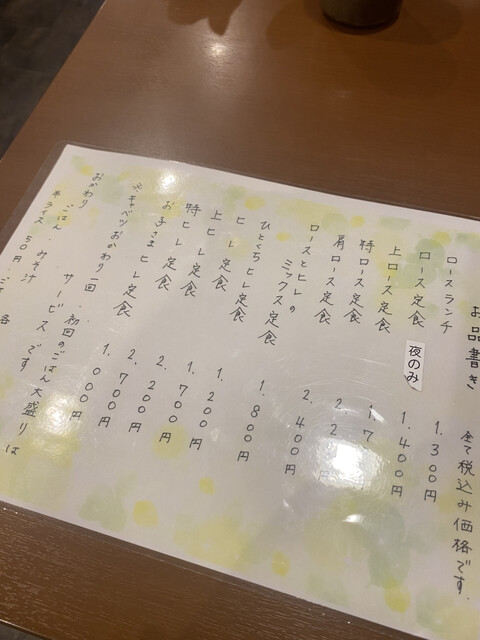 お品書き　全て税込み価格です。
ロースランチ　1.300円
ロース定食　夜のみ　1.400円
上ロース定食　1.7
特ロース定食　2.2
肩ロース定食　2.400円
ロースとヒレの
ミックス定食　1.800円
ひとくちヒレ定食　1.200円
ヒレ定食　1.700円
上ヒレ定食　2.200円
特ヒレ定食　2.700円
お子さまヒレ定食　1.000円
※キャベツおかわり一回、初回のごはん大盛りは
サービスです
おかわり　ごはん・みそ汁　各
半ライス　50円